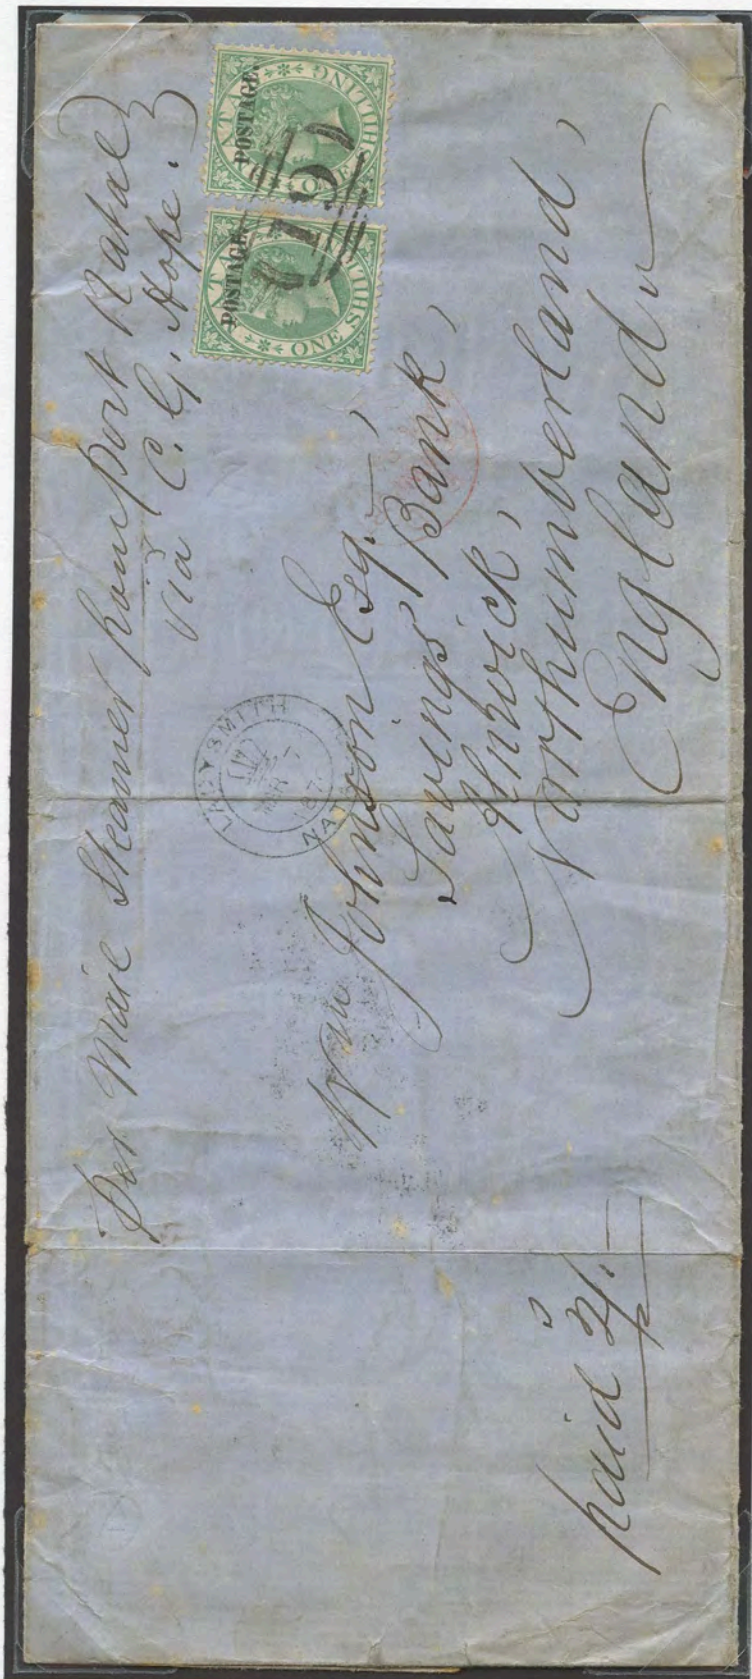 Per Mail Steamer from Port Natal
via C. G. Hope.
NATAL
ONE SHILLING
POSTAGE.
NATAL
ONE SHILLING
POSTAGE.
LADYSMITH
NATAL
Wm Johnson Esq.,
Savings Bank,
Alnwick,
Northumberland,
England
paid 2/s